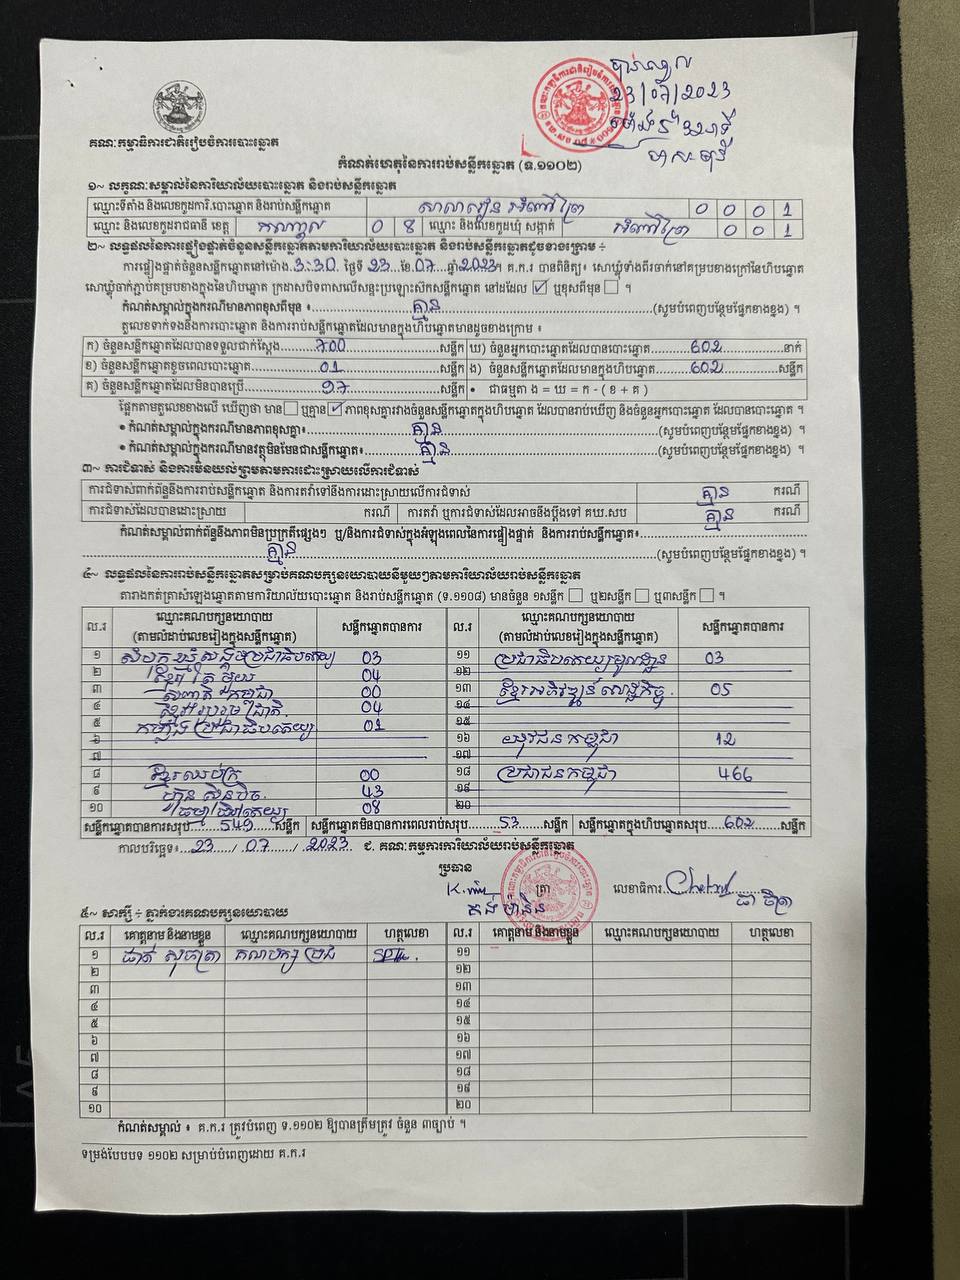 បានឃើញ
23/07/2023
គណៈកម្មាធិការជាតិរៀបចំការបោះឆ្នោត
កំណត់ហេតុនៃការរាប់សន្លឹកឆ្នោត (ទ.១១០២)
១~ លក្ខណៈសម្គាល់នៃការិយាល័យបោះឆ្នោត និងរាប់សន្លឹកឆ្នោត
ឈ្មោះទីតាំង និងលេខកូដការិ.បោះឆ្នោត និងរាប់សន្លឹកឆ្នោត សាលារៀន អំពៅព្រៃ 0 0 0 1
ឈ្មោះ និងលេខកូដរាជធានី ខេត្ត កណ្តាល 0 8 ឈ្មោះ និងលេខកូដឃុំ សង្កាត់ អំពៅព្រៃ 0 0 1
២~ លទ្ធផលនៃការផ្ទៀងផ្ទាត់ចំនួនសន្លឹកឆ្នោតតាមការិយាល័យបោះឆ្នោត និងរាប់សន្លឹកឆ្នោតដូចខាងក្រោម ៖
ការផ្ទៀងផ្ទាត់ចំនួនសន្លឹកឆ្នោតនៅម៉ោង 3:30 ថ្ងៃទី 23 ខែ 07 ឆ្នាំ 2023។ គ.ក.រ បានពិនិត្យ៖ សោឃ្លុំទាំងពីរចាក់នៅគម្របខាងក្រៅនៃហិបឆ្នោត
សោឃ្លុំចាក់ភ្ជាប់គម្របខាងក្នុងនៃហិបឆ្នោត ក្រដាសបិទពាសលើសន្ទះប្រឡោះសៀតសន្លឹកឆ្នោត នៅដដែល ☑ ឬខុសពីមុន ☐ ។
កំណត់សម្គាល់ក្នុងករណីមានភាពខុសពីមុន ៖ គ្មាន (សូមបំពេញបន្ថែមផ្នែកខាងខ្នង) ។
តួលេខទាក់ទងនឹងការបោះឆ្នោត និងការរាប់សន្លឹកឆ្នោតដែលមានក្នុងហិបឆ្នោតមានដូចខាងក្រោម ៖
ក) ចំនួនសន្លឹកឆ្នោតដែលបានទទួលជាក់ស្តែង 700 សន្លឹក ឃ) ចំនួនអ្នកបោះឆ្នោតដែលបានបោះឆ្នោត 602 នាក់
ខ) ចំនួនសន្លឹកឆ្នោតខូចពេលបោះឆ្នោត 01 សន្លឹក ង) ចំនួនសន្លឹកឆ្នោតដែលមានក្នុងហិបឆ្នោត 602 សន្លឹក
គ) ចំនួនសន្លឹកឆ្នោតដែលមិនបានប្រើ 97 សន្លឹក • ជាធម្មតា ង = ឃ = ក - ( ខ + គ )
ផ្អែកតាមតួលេខខាងលើ ឃើញថា មាន ☐ ឬគ្មាន ☑ ភាពខុសគ្នារវាងចំនួនសន្លឹកឆ្នោតក្នុងហិបឆ្នោត ដែលបានរាប់ឃើញ និងចំនួនអ្នកបោះឆ្នោត ដែលបានបោះឆ្នោត ។
• កំណត់សម្គាល់ក្នុងករណីមានភាពខុសគ្នា៖ គ្មាន (សូមបំពេញបន្ថែមផ្នែកខាងខ្នង) ។
• កំណត់សម្គាល់ក្នុងករណីមានវត្ថុមិនមែនជាសន្លឹកឆ្នោត៖ គ្មាន (សូមបំពេញបន្ថែមផ្នែកខាងខ្នង) ។
៣~ ការជំទាស់ និងការមិនយល់ព្រមតាមការដោះស្រាយលើការជំទាស់
ការជំទាស់ពាក់ព័ន្ធនឹងការរាប់សន្លឹកឆ្នោត និងការតវ៉ាទៅនឹងការដោះស្រាយលើការជំទាស់ គ្មាន ករណី
ការជំទាស់ដែលបានដោះស្រាយ ករណី ការតវ៉ា ឬការជំទាស់ដែលអាចនឹងប្តឹងទៅ គឃ.សប គ្មាន ករណី
កំណត់សម្គាល់ពាក់ព័ន្ធនឹងភាពមិនប្រក្រតីផ្សេងៗ ឬ/និងការជំទាស់ក្នុងអំឡុងពេលនៃការផ្ទៀងផ្ទាត់ និងការរាប់សន្លឹកឆ្នោត៖
គ្មាន (សូមបំពេញបន្ថែមផ្នែកខាងខ្នង) ។
៤~ លទ្ធផលនៃការរាប់សន្លឹកឆ្នោតសម្រាប់គណបក្សនយោបាយនីមួយៗតាមការិយាល័យរាប់សន្លឹកឆ្នោត
តារាងកត់ត្រាសំឡេងឆ្នោតតាមការិយាល័យបោះឆ្នោត និងរាប់សន្លឹកឆ្នោត (ទ.១១០៨) មានចំនួន ១សន្លឹក ☐ ឬ២សន្លឹក ☐ ឬ៣សន្លឹក ☐ ។
ល.រ ឈ្មោះគណបក្សនយោបាយ (តាមលំដាប់លេខរៀងក្នុងសន្លឹកឆ្នោត) សន្លឹកឆ្នោតបានការ ល.រ ឈ្មោះគណបក្សនយោបាយ (តាមលំដាប់លេខរៀងក្នុងសន្លឹកឆ្នោត) សន្លឹកឆ្នោតបានការ
១ សំបុកឃ្មុំសង្គមប្រជាធិបតេយ្យ 03 ១១ ប្រជាធិបតេយ្យមូលដ្ឋាន 03
២ ខ្មែររួបរួម 04 ១២
៣ សញ្ជាតិកម្ពុជា 00 ១៣ ខ្មែរអភិវឌ្ឍន៍សេដ្ឋកិច្ច 05
៤ ខ្មែររួបរួមជាតិ 04 ១៤
៥ កម្លាំងប្រជាធិបតេយ្យ 01 ១៥
៦ ១៦ យុវជនកម្ពុជា 12
៧ ១៧
៨ ខ្មែរឈប់ក្រ 00 ១៨ ប្រជាជនកម្ពុជា 466
៩ ហ៊្វុនស៊ិនប៉ិច 43 ១៩
១០ ធម្មាធិបតេយ្យ 08 ២០
សន្លឹកឆ្នោតបានការសរុប 549 សន្លឹក សន្លឹកឆ្នោតមិនបានការពេលរាប់សរុប 53 សន្លឹក សន្លឹកឆ្នោតក្នុងហិបឆ្នោតសរុប 602 សន្លឹក
កាលបរិច្ឆេទ៖ 23 / 07 / 2023 ជ. គណៈកម្មការការិយាល័យរាប់សន្លឹកឆ្នោត
ប្រធាន
ត្រា លេខាធិការ
៥~ សាក្សី ៖ ភ្នាក់ងារគណបក្សនយោបាយ
ល.រ គោត្តនាម និងនាមខ្លួន ឈ្មោះគណបក្សនយោបាយ ហត្ថលេខា ល.រ គោត្តនាម និងនាមខ្លួន ឈ្មោះគណបក្សនយោបាយ ហត្ថលេខា
១ ១១
២ ១២
៣ ១៣
៤ ១៤
៥ ១៥
៦ ១៦
៧ ១៧
៨ ១៨
៩ ១៩
១០ ២០
កំណត់សម្គាល់ ៖ គ.ក.រ ត្រូវបំពេញ ទ.១១០២ ឱ្យបានត្រឹមត្រូវ ចំនួន ៣ច្បាប់ ។
ទម្រង់បែបបទ ១១០២ សម្រាប់បំពេញដោយ គ.ក.រ